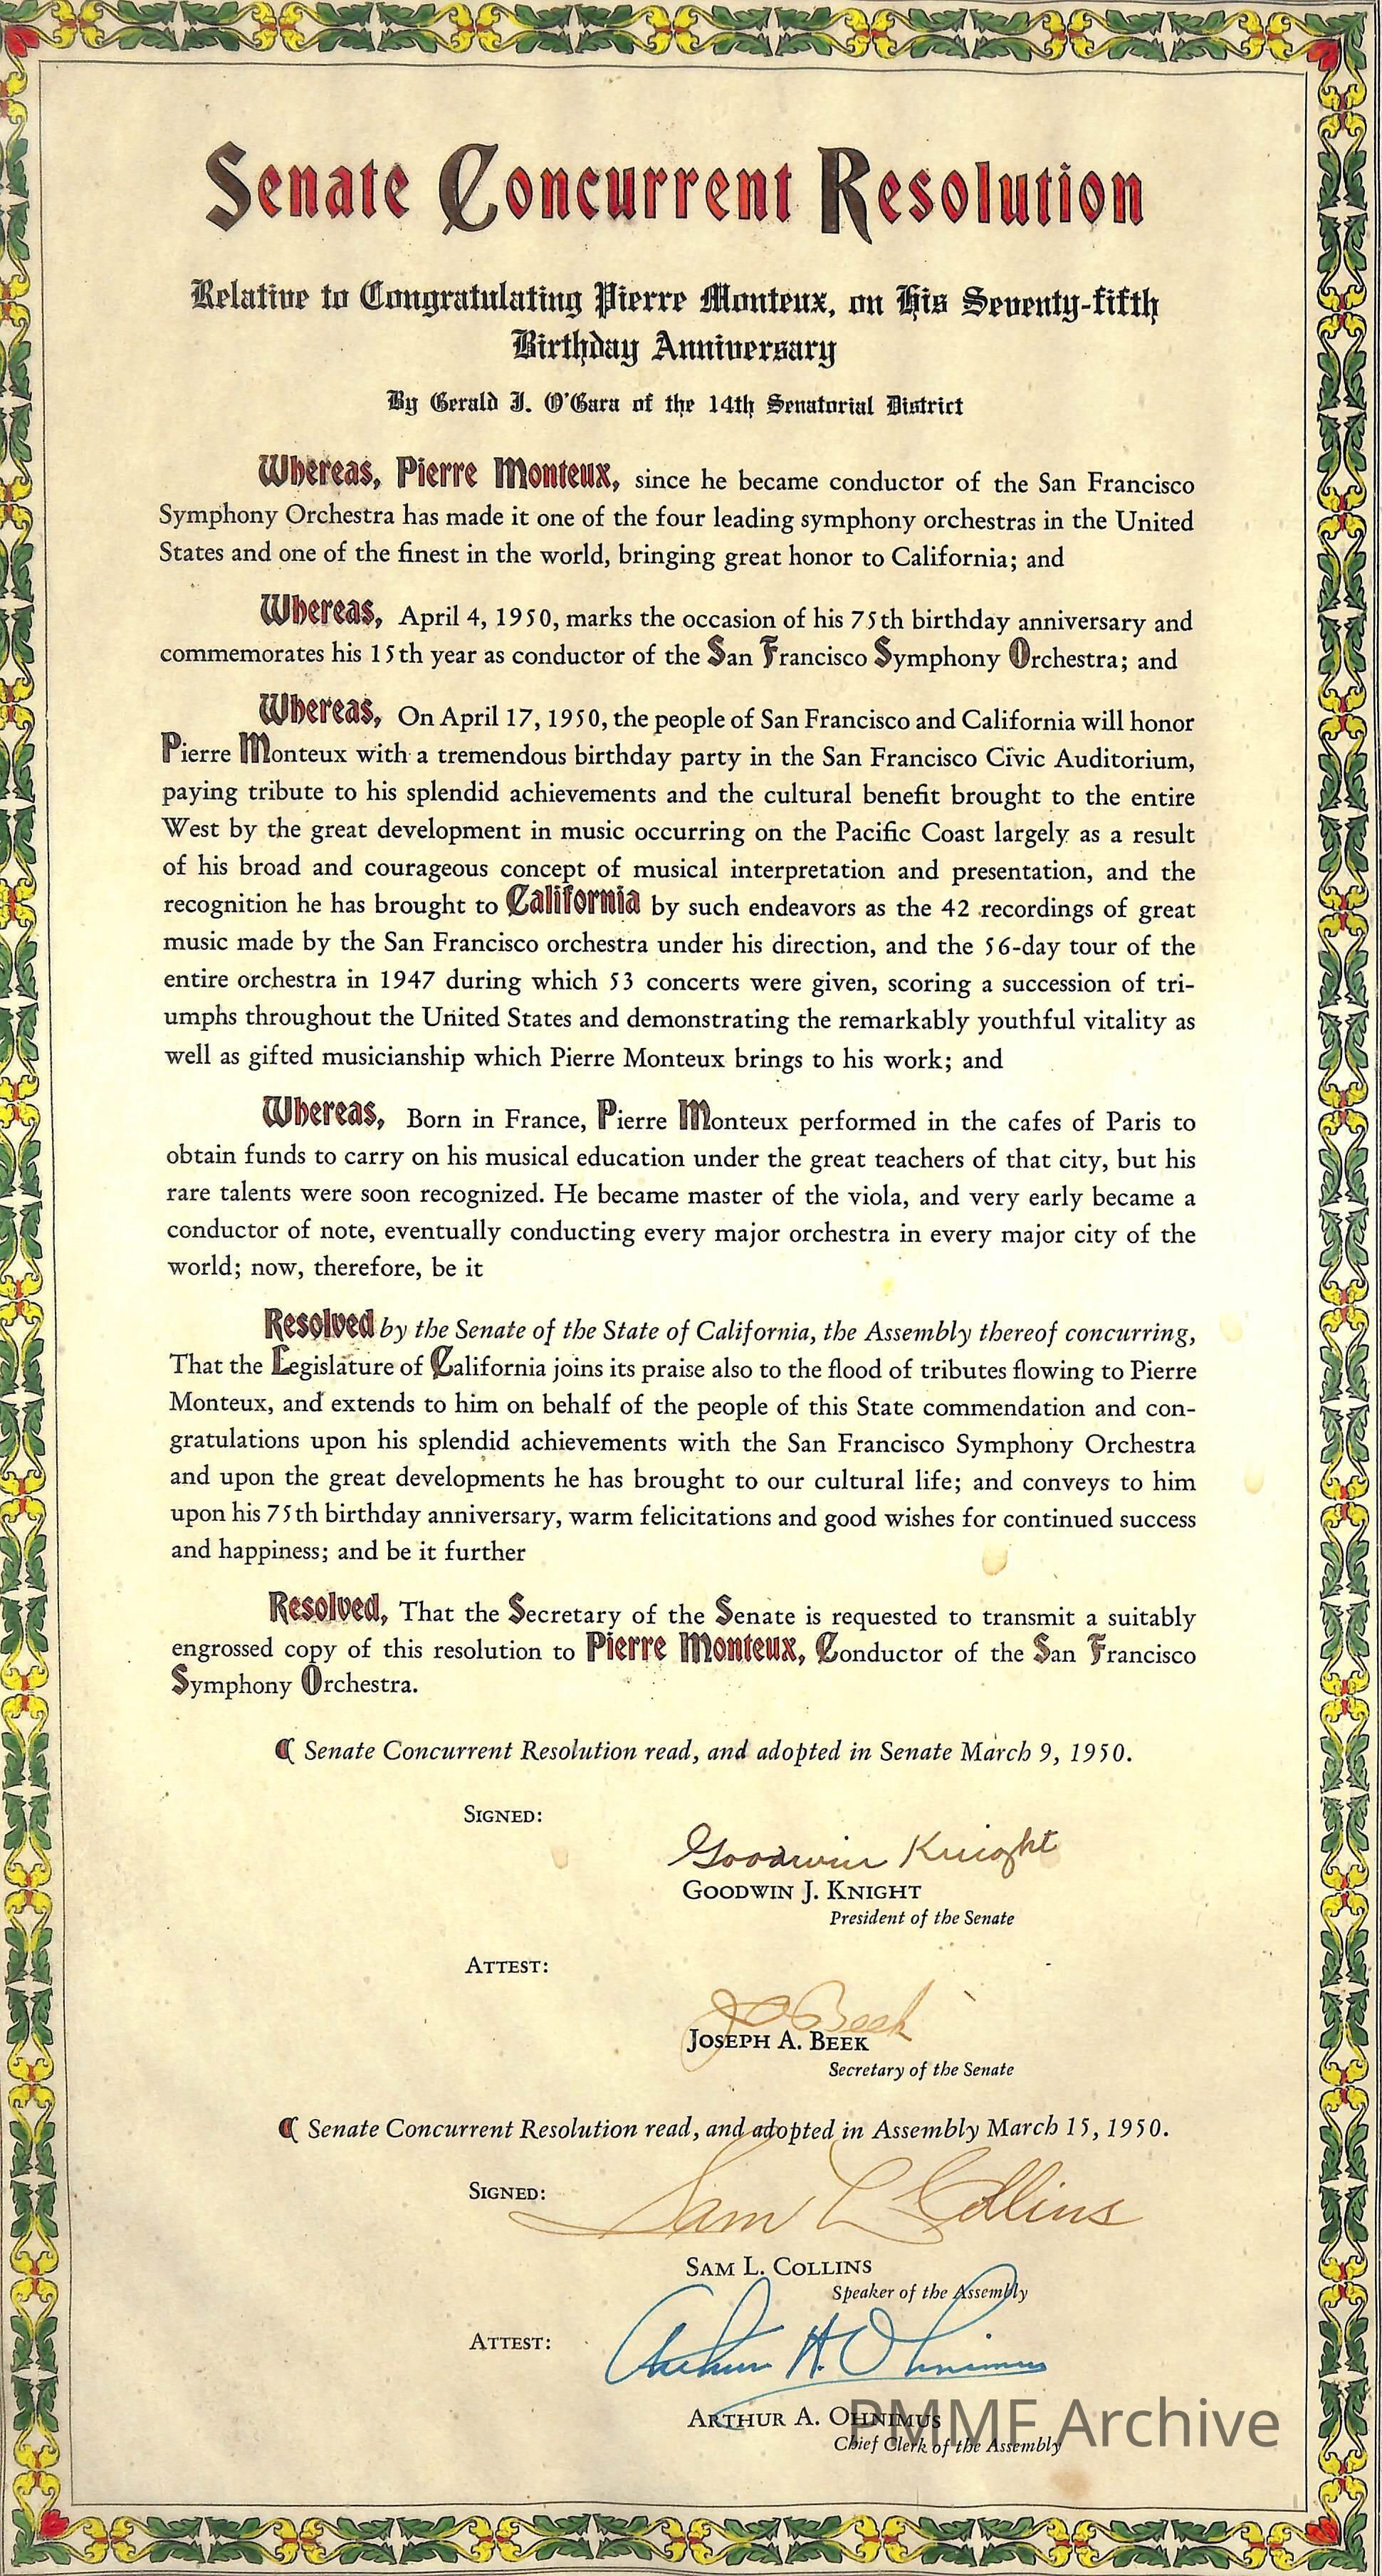 Senate Concurrent Resolution
Relative to Congratulating Pierre Monteux, on His Seventy-fifth
Birthday Anniversary
By Gerald J. O'Gara of the 14th Senatorial District
Whereas, Pierre Monteux, since he became conductor of the San Francisco
Symphony Orchestra has made it one of the four leading symphony orchestras in the United
States and one of the finest in the world, bringing great honor to California; and
Whereas, April 4, 1950, marks the occasion of his 75th birthday anniversary and
commemorates his 15th year as conductor of the San Francisco Symphony Orchestra; and
Whereas, On April 17, 1950, the people of San Francisco and California will honor
Pierre Monteux with a tremendous birthday party in the San Francisco Civic Auditorium,
paying tribute to his splendid achievements and the cultural benefit brought to the entire
West by the great development in music occurring on the Pacific Coast largely as a result
of his broad and courageous concept of musical interpretation and presentation, and the
recognition he has brought to California by such endeavors as the 42 recordings of great
music made by the San Francisco orchestra under his direction, and the 56-day tour of the
entire orchestra in 1947 during which 53 concerts were given, scoring a succession of tri-
umphs throughout the United States and demonstrating the remarkably youthful vitality as
well as gifted musicianship which Pierre Monteux brings to his work; and
Whereas, Born in France, Pierre Monteux performed in the cafes of Paris to
obtain funds to carry on his musical education under the great teachers of that city, but his
rare talents were soon recognized. He became master of the viola, and very early became a
conductor of note, eventually conducting every major orchestra in every major city of the
world; now, therefore, be it
Resolved by the Senate of the State of California, the Assembly thereof concurring,
That the Legislature of California joins its praise also to the flood of tributes flowing to Pierre
Monteux, and extends to him on behalf of the people of this State commendation and con-
gratulations upon his splendid achievements with the San Francisco Symphony Orchestra
and upon the great developments he has brought to our cultural life; and conveys to him
upon his 75th birthday anniversary, warm felicitations and good wishes for continued success
and happiness; and be it further
Resolved, That the Secretary of the Senate is requested to transmit a suitably
engrossed copy of this resolution to Pierre Monteux, Conductor of the San Francisco
Symphony Orchestra.
Senate Concurrent Resolution read, and adopted in Senate March 9, 1950.
SIGNED:
Goodwin Knight
GOODWIN J. KNIGHT
President of the Senate
ATTEST:
J A Beek
JOSEPH A. BEEK
Secretary of the Senate
Senate Concurrent Resolution read, and adopted in Assembly March 15, 1950.
SIGNED:
Sam L Collins
SAM L. COLLINS
Speaker of the Assembly
ATTEST:
Arthur A. Ohnimus
ARTHUR A. OHNIMUS
Chief Clerk of the Assembly
PMMF Archive